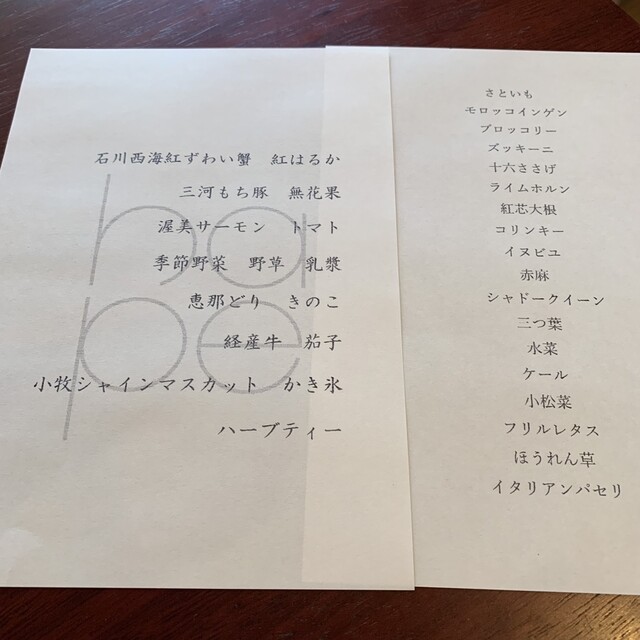 石川西海紅ずわい蟹　紅はるか
三河もち豚　無花果
渥美サーモン　トマト
季節野菜　野草　乳漿
恵那どり　きのこ
経産牛　茄子
小牧シャインマスカット　かき氷
ハーブティー
na
pe
さといも
モロッコインゲン
ブロッコリー
ズッキーニ
十六ささげ
ライムホルン
紅芯大根
コリンキー
イヌビユ
赤麻
シャドークイーン
三つ葉
水菜
ケール
小松菜
フリルレタス
ほうれん草
イタリアンパセリ